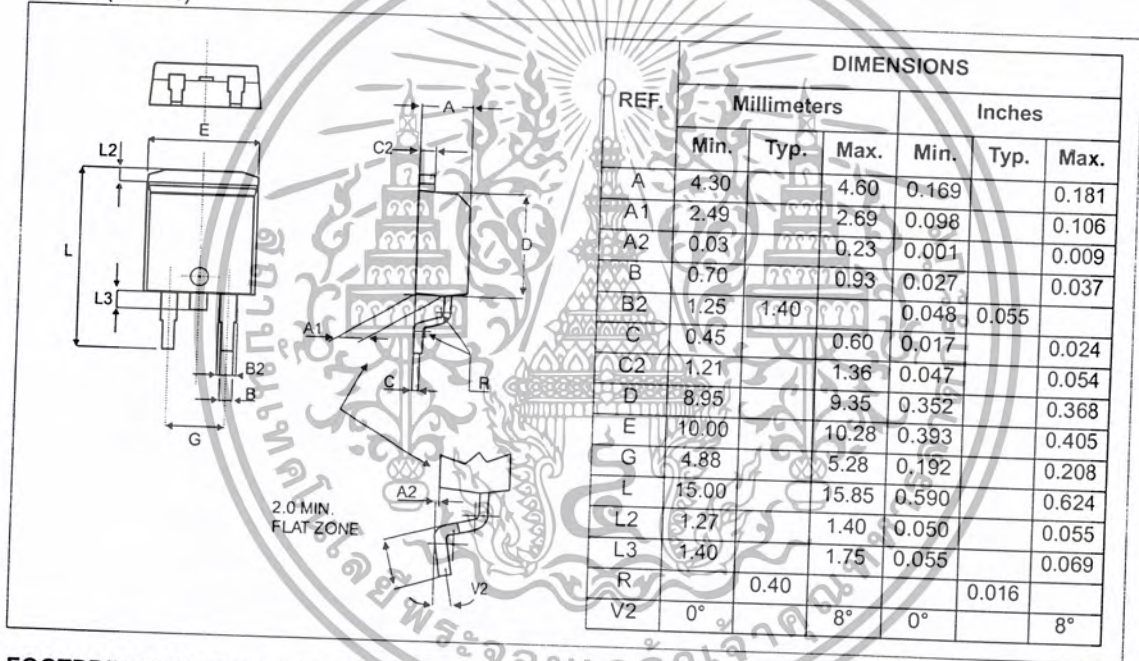 E
L2
L
L3
B2
B
G
A
C2
D
A1
C
R
A2
2.0 MIN.
FLAT ZONE
V2
REF. DIMENSIONS
Millimeters Inches
Min. Typ. Max. Min. Typ. Max.
A 4.30 4.60 0.169 0.181
A1 2.49 2.69 0.098 0.106
A2 0.03 0.23 0.001 0.009
B 0.70 0.93 0.027 0.037
B2 1.25 1.40 0.048 0.055
C 0.45 0.60 0.017 0.024
C2 1.21 1.36 0.047 0.054
D 8.95 9.35 0.352 0.368
E 10.00 10.28 0.393 0.405
G 4.88 5.28 0.192 0.208
L 15.00 15.85 0.590 0.624
L2 1.27 1.40 0.050 0.055
L3 1.40 1.75 0.055 0.069
R 0.40 0.016
V2 0° 8° 0° 8°